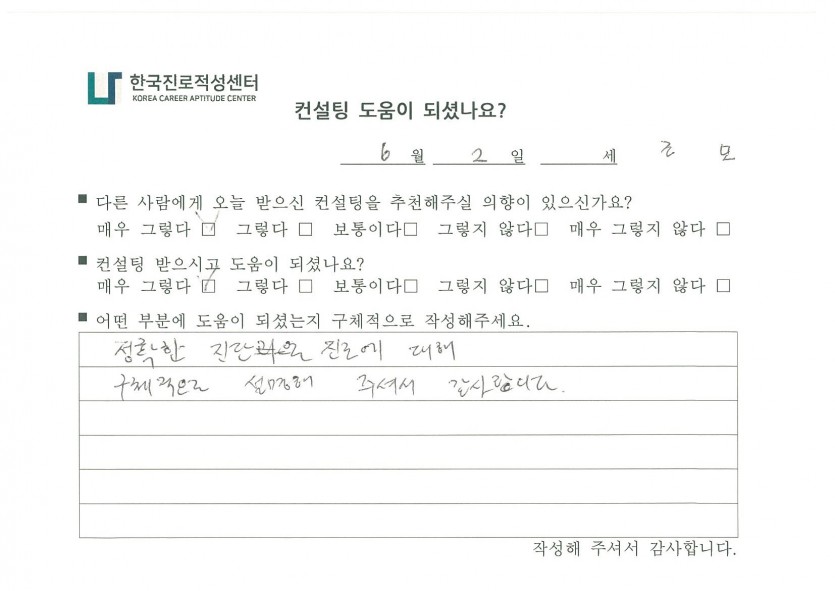 한국진로적성센터
KOREA CAREER APTITUDE CENTER
컨설팅 도움이 되셨나요?
6 월 2 일 세 조 모
■ 다른 사람에게 오늘 받으신 컨설팅을 추천해주실 의향이 있으신가요?
매우 그렇다 ☑ 그렇다 □ 보통이다□ 그렇지 않다□ 매우 그렇지 않다 □
■ 컨설팅 받으시고 도움이 되셨나요?
매우 그렇다 ☑ 그렇다 □ 보통이다□ 그렇지 않다□ 매우 그렇지 않다 □
■ 어떤 부분에 도움이 되셨는지 구체적으로 작성해주세요.
정확한 진단으로 진로에 대해
구체적으로 설명해 주셔서 감사합니다.
작성해 주셔서 감사합니다.